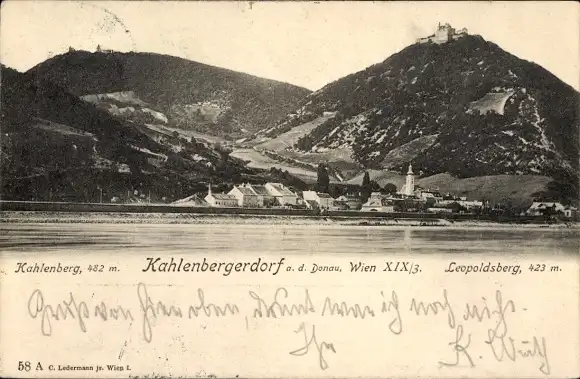 Kahlenberg, 482 m. Kahlenbergerdorf a. d. Donau, Wien XIX/3. Leopoldsberg, 423 m.
Gruß von hier oben, dort war ich noch nicht.
Ihr K.
58 A C. Ledermann jr. Wien I.